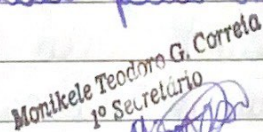 Monikele Teodoro G. Correia
1º Secretário